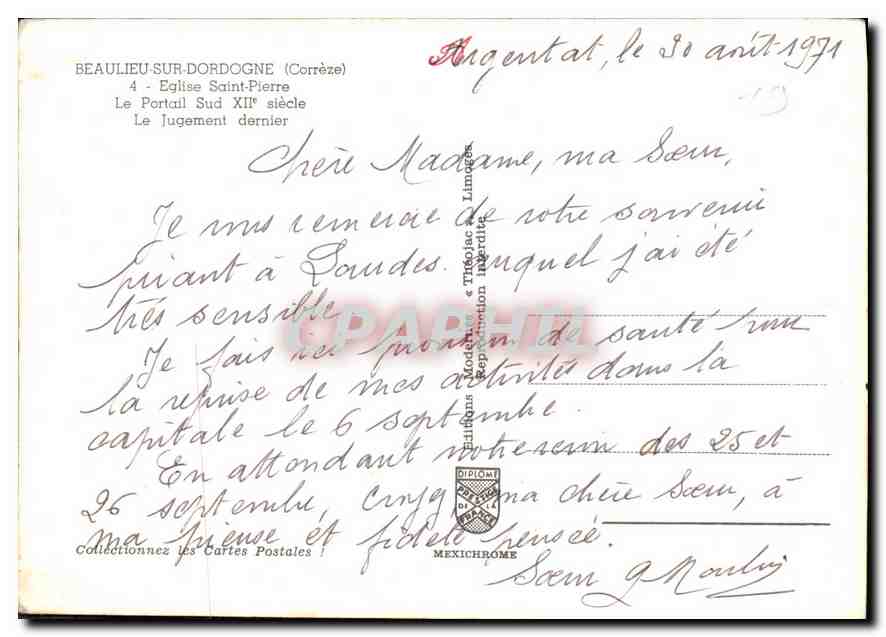 BEAULIEU-SUR-DORDOGNE (Corrèze)
4 - Eglise Saint-Pierre
Le Portail Sud XIIe siècle
Le Jugement dernier
Argentat, le 30 août 1971
Chère Madame, ma Sœur,
Je vous remercie de votre souvenir
priant à Lourdes auquel j'ai été
très sensible
Je fais ici provision de santé pour
la reprise de mes activités dans la
capitale le 6 septembre.
En attendant notre réunion des 25 et
26 septembre, croyez, ma chère Sœur, à
ma pieuse et fidèle pensée.
Sœur G Moulin
Editions Modernes « Théojac » Limoges
Reproduction interdite
CPAPHIL
DIPLOME
PRESTIGE
DE LA
FRANCE
MEXICHROME
Collectionnez les Cartes Postales !